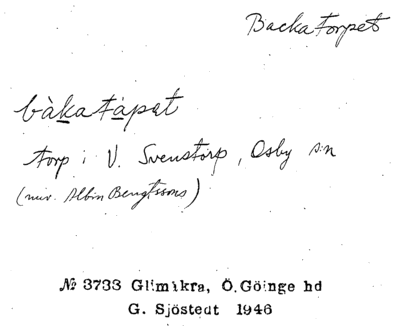 Backatorpet
bàkatápat
torp i V. Svenstorp, Osby sn
(nuv. Albin Bengtssons)
№ 3733 Glimåkra, Ö. Göinge hd
G. Sjöstedt 1946